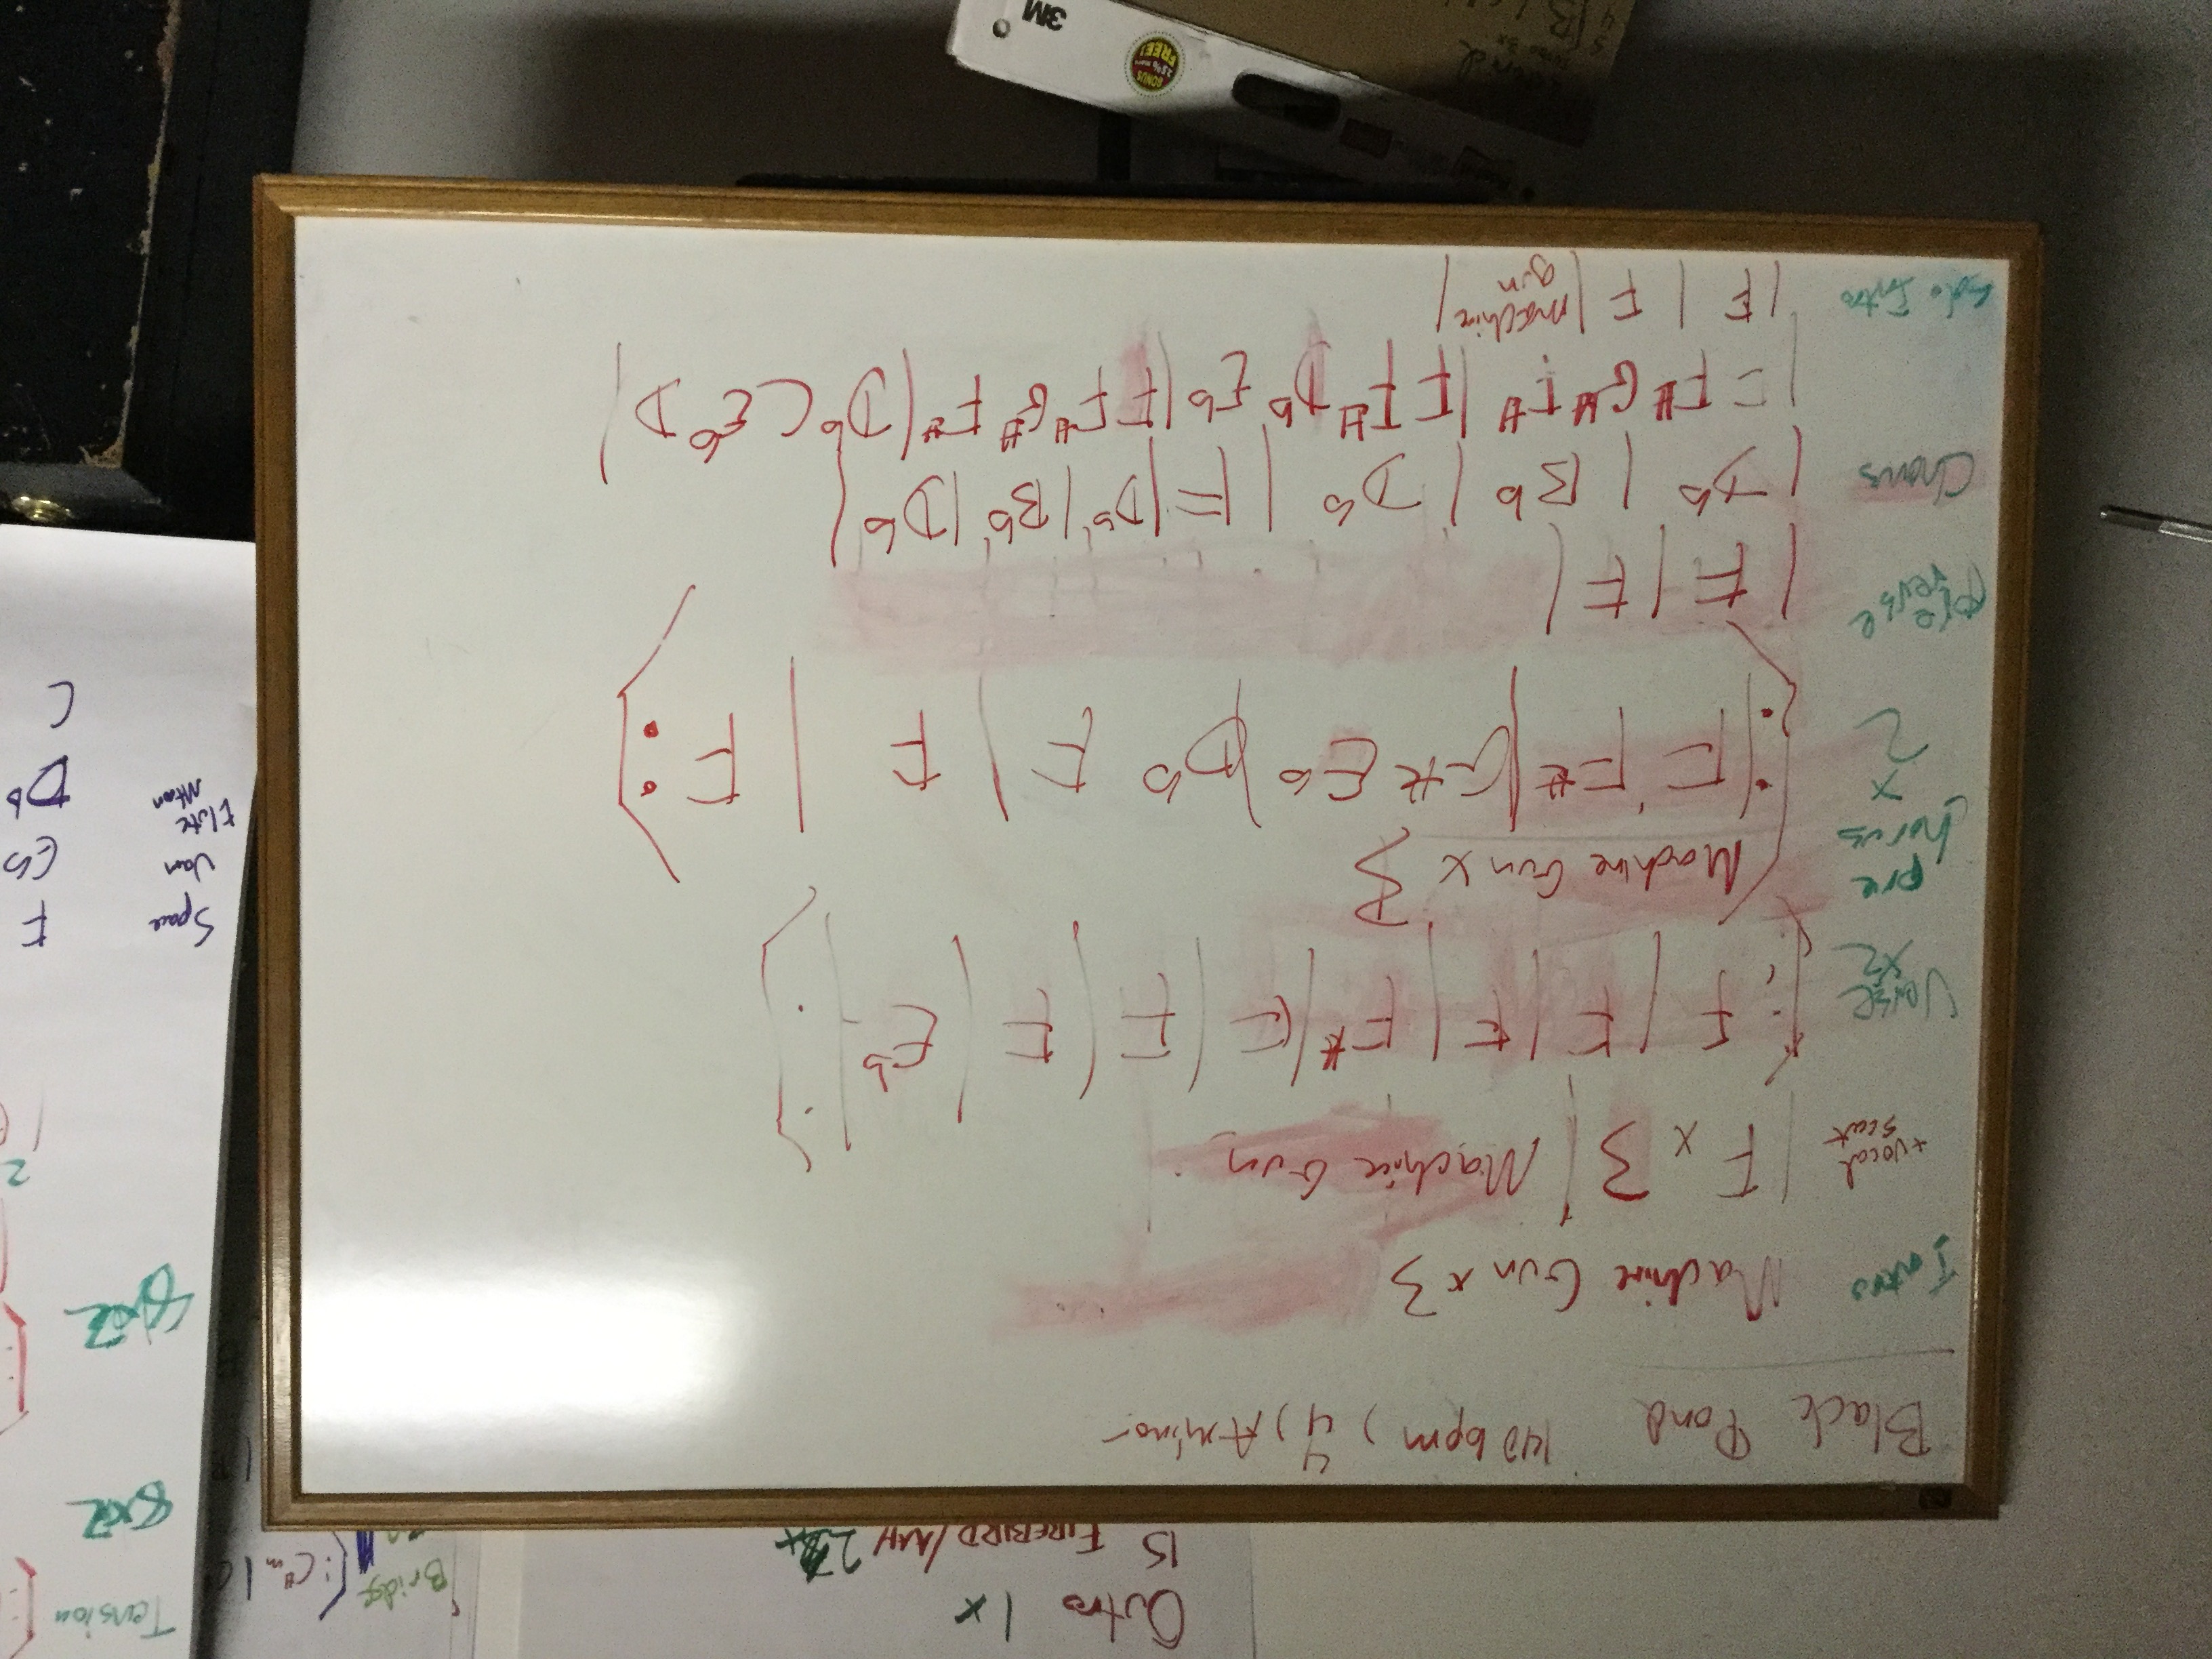 Outro 1x
15 FIREBIRD/AAH
Bridge
C#m |
Tension
8x
8x
2
Space F
Jam Eb
Db
C
Black Pond 140 bpm, 4/4, A minor
Intro Machine Gun x 3
+ vocal scat | F x 3 | Machine Gun
Verse x2 |: F | F | F | F# | F | F | F | Eb | :|
pre chorus x 2 Machine Gun x 3
:| F F# | G# Eb | Db F | F | F :
pre verse | F | F |
Chorus | Db | Bb | Db | F | Db | Bb | Db |
| F F# G# F# | F F# Db Eb | F F# G# F# | Db C Eb D |
Solo Intro | F | F | machine gun |
BONUS
25% more
FREE!
3M